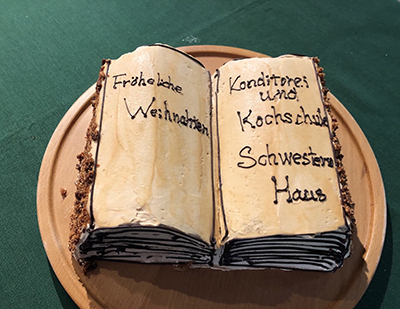 Fröheliche
Weihnachten
Konditorei
und
Kochschule
Schwestern
Haus